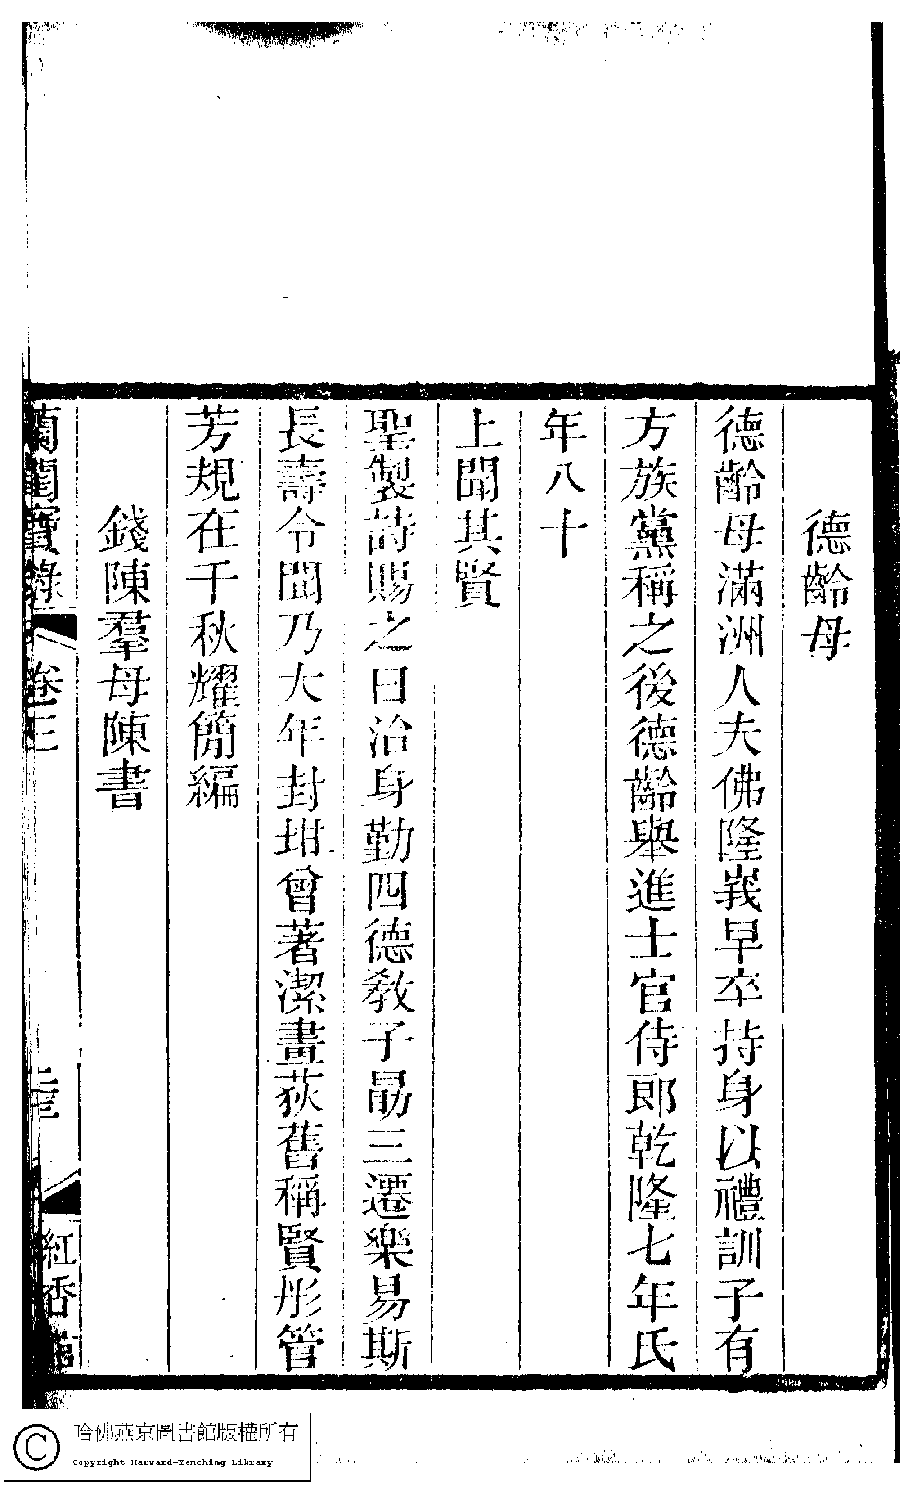 德齡母
德齡母滿洲人夫佛隆峩早卒持身以禮訓子有
方族黨稱之後德齡舉進士官侍郎乾隆七年氏
年八十
上聞其賢
聖製詩賜之曰治身勤四德教子勗三遷樂易斯
長壽令聞乃大年封坩曾著潔畫荻舊稱賢彤管
芳規在千秋耀簡編
錢陳羣母陳書
蘭閨寶錄
卷三
紅香
哈佛燕京圖書館版權所有
Copyright Harvard-Yenching Library